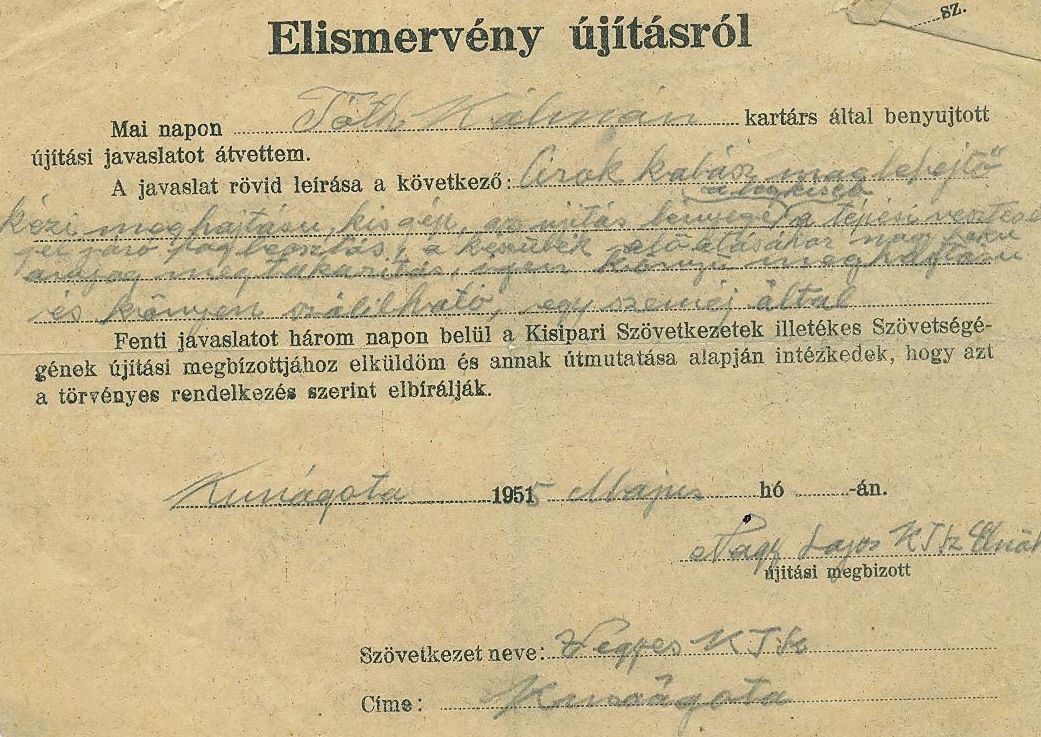 sz.
Elismervény újításról
Mai napon Tóth Kálmán kartárs által benyujtott
újítási javaslatot átvettem.
A javaslat rövid leírása a következő: Cirok kabász maglefejtő
kézi meghajtásu, kisgép, az ujitás lényege, a tépési veszteség
a legkisebb
a készülék előálásához nagy
anyag megtakaritás, igen könnyü meghajtásu
és könnyen szálitható, egy személy által
Fenti javaslatot három napon belül a Kisipari Szövetkezetek illetékes Szövetségé-
gének újítási megbízottjához elküldöm és annak útmutatása alapján intézkedek, hogy azt
a törvényes rendelkezés szerint elbírálják.
Kunágota 1955 Május hó -án.
Nagy Lajos KTSz Elnök
újítási megbizott
Szövetkezet neve: Vegyes KTSz
Címe: Kunágota